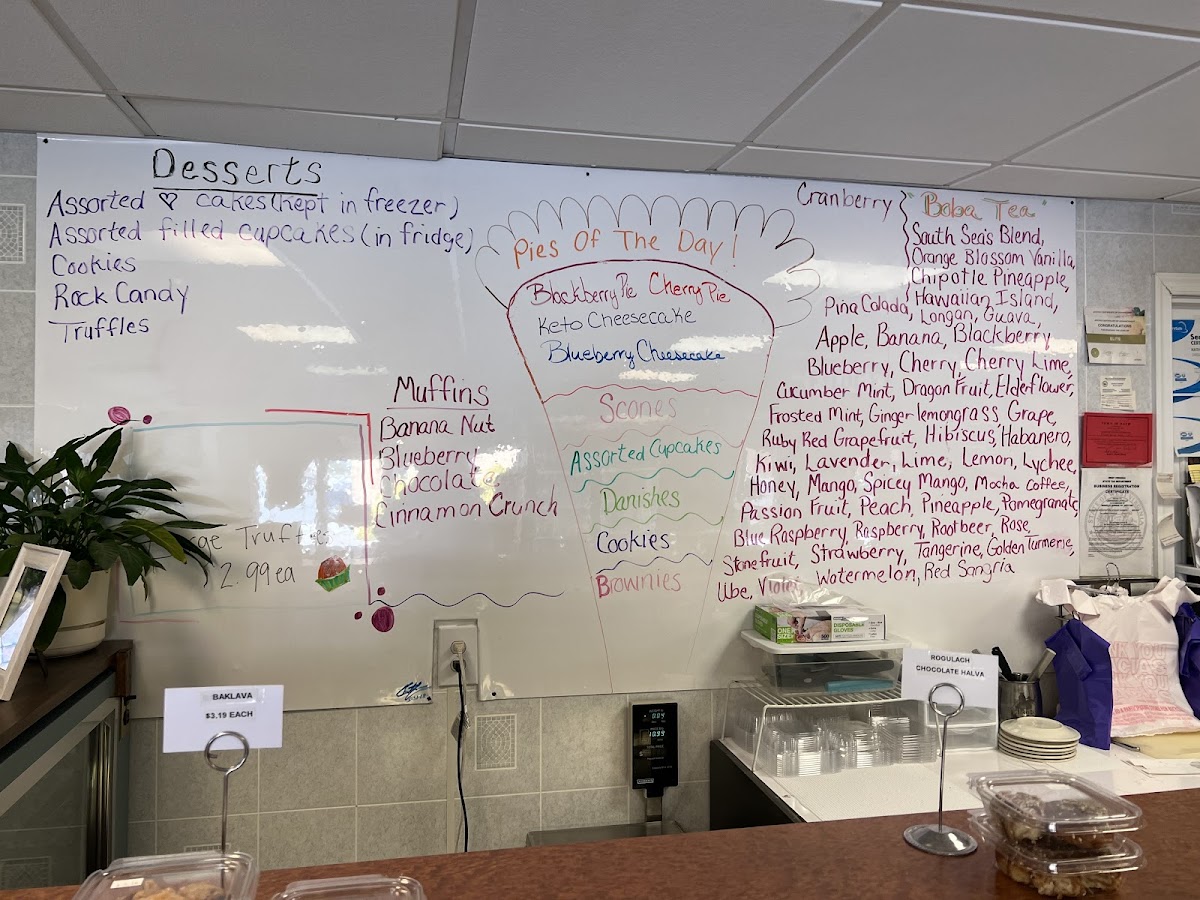 Desserts
Assorted ♡ cakes (kept in freezer)
Assorted filled cupcakes (in fridge)
Cookies
Rock Candy
Truffles
Truffles
2.99 ea
Muffins
Banana Nut
Blueberry
Chocolate
Cinnamon Crunch
Pies Of The Day!
Blackberry Pie Cherry Pie
Keto Cheesecake
Blueberry Cheesecake
Scones
Assorted Cupcakes
Danishes
Cookies
Brownies
Boba Tea
Cranberry
South Sea's Blend,
Orange Blossom Vanilla,
Chipotle Pineapple,
Hawaiian Island,
Piña Colada, Longan, Guava,
Apple, Banana, Blackberry,
Blueberry, Cherry, Cherry Lime,
Cucumber Mint, Dragon Fruit, Elderflower,
Frosted Mint, Ginger lemongrass, Grape,
Ruby Red Grapefruit, Hibiscus, Habanero,
Kiwi, Lavender, Lime, Lemon, Lychee,
Honey, Mango, Spicey Mango, Mocha Coffee,
Passion Fruit, Peach, Pineapple, Pomegranate,
Blue Raspberry, Raspberry, Rootbeer, Rose,
Stonefruit, Strawberry, Tangerine, Golden Turmeric,
Ube, Violet, Watermelon, Red Sangria
CONGRATULATIONS
BUSINESS REGISTRATION
CERTIFICATE
DISPOSABLE
GLOVES
BAKLAVA
$3.19 EACH
ROGULACH
CHOCOLATE HALVA